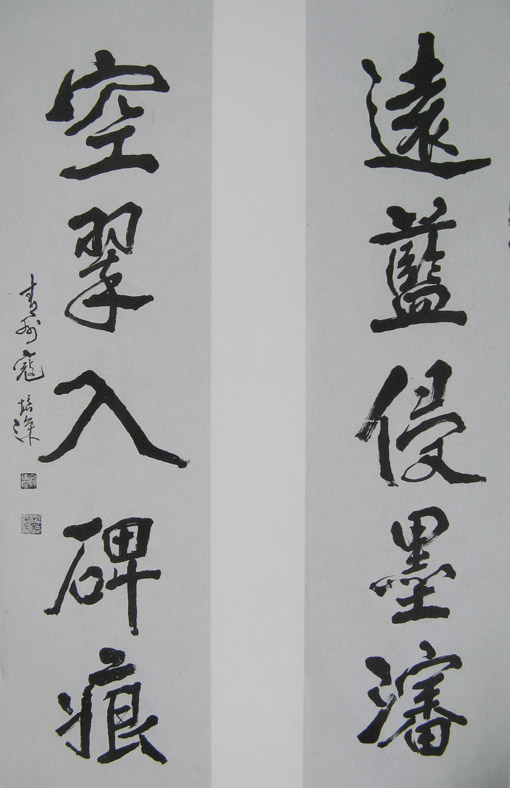 遠藍侵墨瀋
空翠入碑痕
青州寇培深